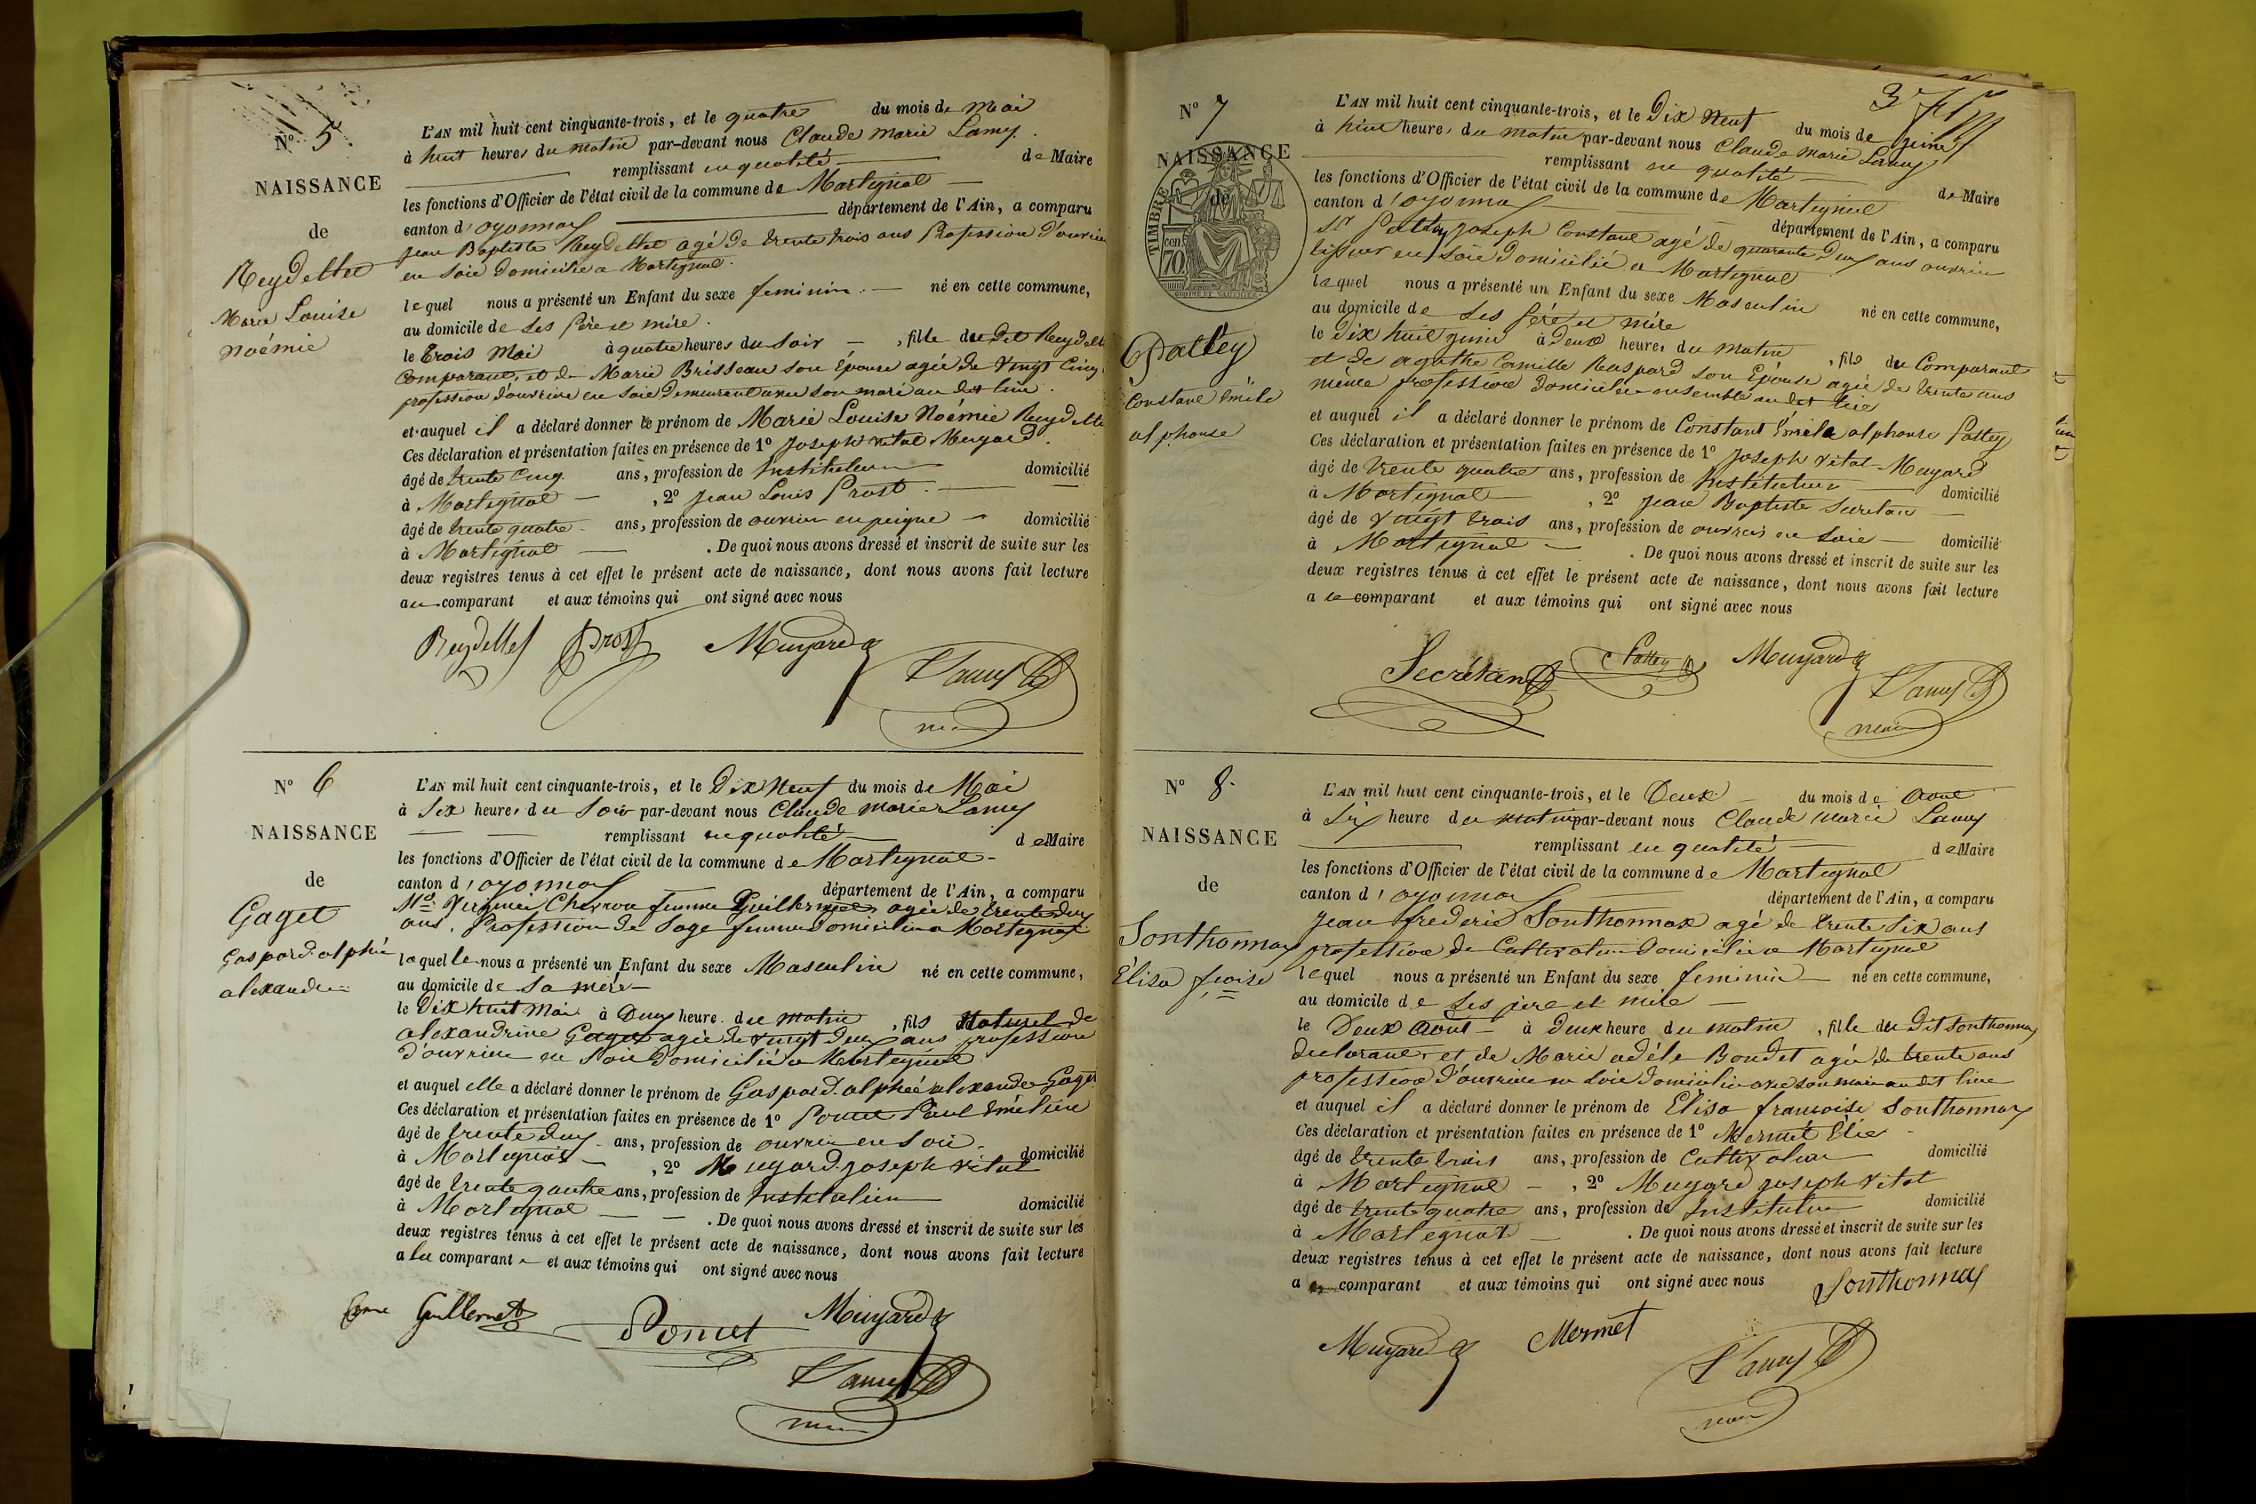 N° 5.
NAISSANCE
de
Reydellet
Marie Louise
Noémie
L'AN mil huit cent cinquante-trois, et le quatre du mois de Mai
à huit heures du matin par-devant nous Claude Marie Lamy
remplissant en qualité de Maire
les fonctions d'Officier de l'état civil de la commune de Martignat
canton d'oyonnax département de l'Ain, a comparu
Jean Baptiste Reydellet agé de trente trois ans Profession d'ouvrier
en soie domicilié a Martignat.
lequel nous a présenté un Enfant du sexe feminin. né en cette commune,
au domicile de ses Père et mère.
le trois Mai à quatre heures du soir, fille du dit Reydellet
Comparant, et de Marie Brisseau son Épouse agée de Vingt Cinq
profession d'ouvrière en soie demeurant avec son mari au dit lieu.
et auquel il a déclaré donner le prénom de Marie Louise Noémie Reydellet
Ces déclaration et présentation faites en présence de 1° Joseph Vital Muyard.
âgé de trente Cinq ans, profession de Instituteur domicilié
à Martignat, 2° Jean Louis Prost.
âgé de trente quatre ans, profession de ouvrier en peigne domicilié
à Martignat. De quoi nous avons dressé et inscrit de suite sur les
deux registres tenus à cet effet le présent acte de naissance, dont nous avons fait lecture
au comparant et aux témoins qui ont signé avec nous
Reydellet Prost Muyard
Lamy
N° 6
NAISSANCE
de
Gaget
Gaspard alphée
alexandre
L'AN mil huit cent cinquante-trois, et le Dix Neuf du mois de Mai
à Six heures du Soir par-devant nous Claude Marie Lamy
remplissant en qualité de Maire
les fonctions d'Officier de l'état civil de la commune de Martignat
canton d'oyonnax département de l'Ain, a comparu
Virginie femme Guillermet agée de trente deux
ans. Profession de Sage femme domiciliée a Martignat
laquelle nous a présenté un Enfant du sexe Masculin né en cette commune,
au domicile de sa mère
le Dix huit Mai à Deux heure du matin, fils Naturel de
alexandrine Gaget agée de vingt deux ans profession
d'ouvrière en Soie Domiciliée a Martignat
et auquel elle a déclaré donner le prénom de Gaspard alphée alexandre Gaget
Ces déclaration et présentation faites en présence de 1° Poncet Paul Emélien
âgé de trente deux ans, profession de ouvrier en Soie
à Martignat, 2° Muyard joseph Vital domicilié
âgé de trente quatre ans, profession de Instituteur
à Martignat domicilié
. De quoi nous avons dressé et inscrit de suite sur les
deux registres tenus à cet effet le présent acte de naissance, dont nous avons fait lecture
a la comparante et aux témoins qui ont signé avec nous
fme Guillermet Poncet Muyard
Lamy
N° 7
NAISSANCE
de
TIMBRE
70 cen
Pattey
Constant Émile
alphonse
L'AN mil huit cent cinquante-trois, et le Dix Neuf du mois de juin
à heures du matin par-devant nous Claude Marie Lamy
remplissant en qualité de Maire
les fonctions d'Officier de l'état civil de la commune de Martignat
canton d'oyonnax département de l'Ain, a comparu
Sr Pattey joseph Constant agé de quarante Deux ans ouvrier
en Soie domicilié a Martignat
lequel nous a présenté un Enfant du sexe Masculin né en cette commune,
au domicile de ses père et mère
le Dix huit juin à Deux heures du matin, fils du Comparant
et de agathe Camille Raspard son Épouse agée de trente ans
même profession domiciliée ensemble au dit lieu
et auquel il a déclaré donner le prénom de Constant Émile alphonse Pattey
Ces déclaration et présentation faites en présence de 1° Joseph Vital Muyard
âgé de trente quatre ans, profession de Instituteur domicilié
à Martignat, 2° Jean Baptiste Secretan
âgé de Vingt trois ans, profession de ouvrier en Soie domicilié
à Martignat. De quoi nous avons dressé et inscrit de suite sur les
deux registres tenus à cet effet le présent acte de naissance, dont nous avons fait lecture
a comparant et aux témoins qui ont signé avec nous
Secrétan Pattey Muyard
Lamy
N° 8.
NAISSANCE
de
Sonthonnax
Élisa fçoise
L'AN mil huit cent cinquante-trois, et le Deux du mois de Aout
à Six heure du matin par-devant nous Claude Marie Lamy
remplissant en qualité de Maire
les fonctions d'Officier de l'état civil de la commune de Martignat
canton d'oyonnax département de l'Ain, a comparu
Jean frederic Sonthonnax agé de trente Six ans
profession de Cultivateur domicilié a Martignat
lequel nous a présenté un Enfant du sexe feminin né en cette commune,
au domicile de ses père et mère
le Deux Aout à deux heure du matin, fille du dit Sonthonnax
declarant, et de Marie adèle Bondet agée de trente ans
profession d'ouvrière en Soie domiciliée avec son mari au dit lieu
et auquel il a déclaré donner le prénom de Élisa françoise Sonthonnax
Ces déclaration et présentation faites en présence de 1° Mermet Élie
âgé de trente trois ans, profession de Cultivateur domicilié
à Martignat, 2° Muyard joseph Vital
âgé de trente quatre ans, profession de Instituteur domicilié
à Martignat. De quoi nous avons dressé et inscrit de suite sur les
deux registres tenus à cet effet le présent acte de naissance, dont nous avons fait lecture
a comparant et aux témoins qui ont signé avec nous Sonthonnax
Muyard Mermet
Lamy